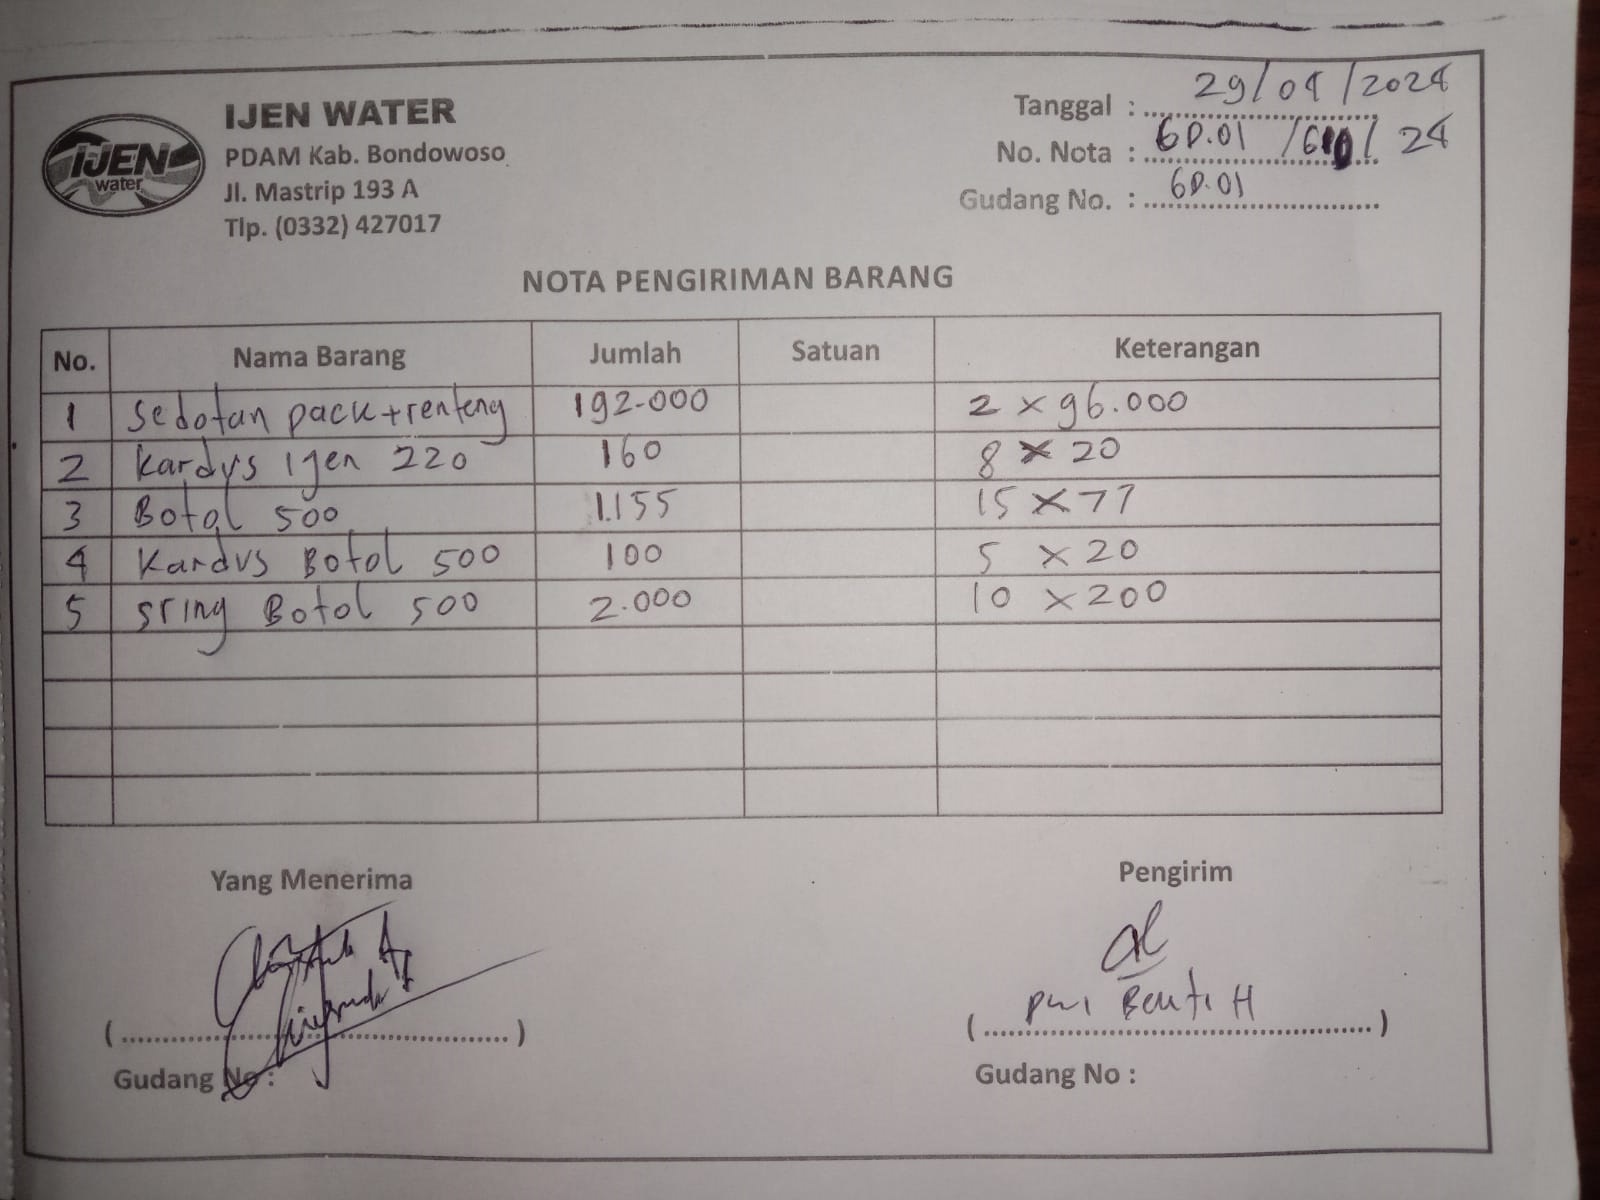 IJEN WATER
PDAM Kab. Bondowoso
Jl. Mastrip 193 A
Tlp. (0332) 427017
IJEN
water
Tanggal : 29/04/2024
No. Nota : GD.01 / / 24
Gudang No. : GD.01
NOTA PENGIRIMAN BARANG
No. Nama Barang Jumlah Satuan Keterangan
1 Sedotan pack+renteng 192.000 2 x 96.000
2 Kardus Ijen 220 160 8 x 20
3 Botol 500 1.155 15 x 77
4 Kardus Botol 500 100 5 x 20
5 sring Botol 500 2.000 10 x 200
Yang Menerima Pengirim
( ) ( H )
Gudang No : Gudang No :